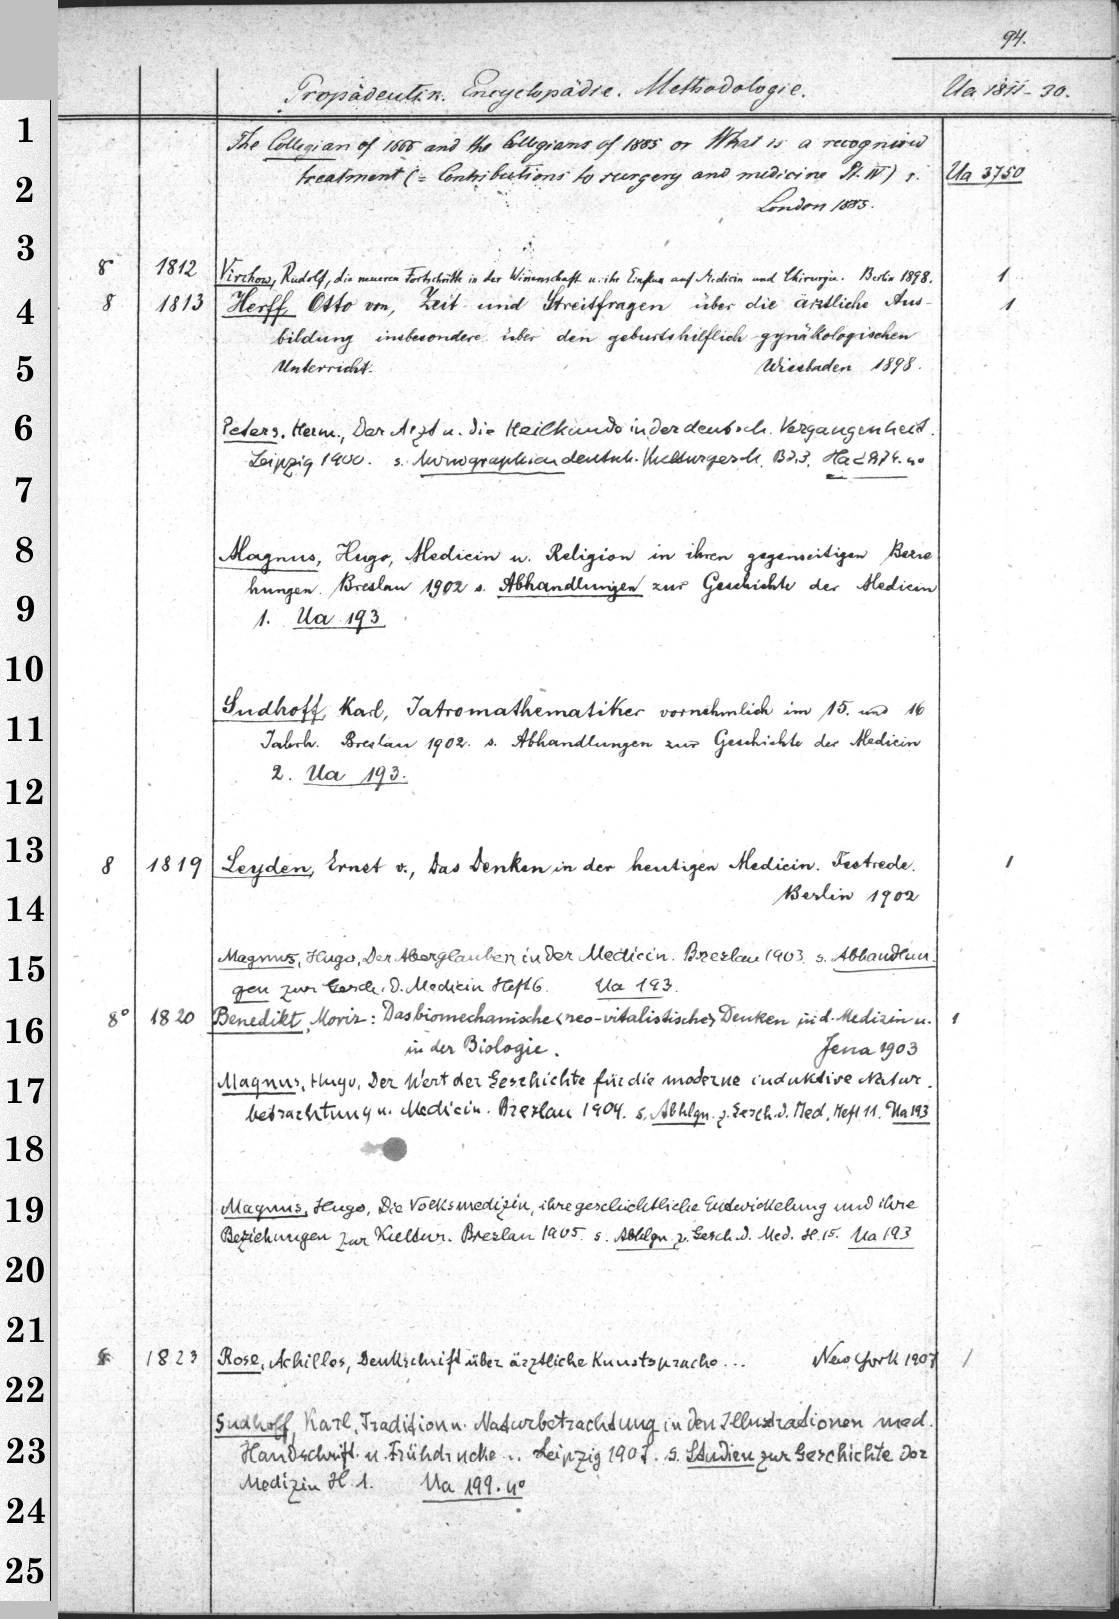 94.
Propädeutik. Encyclopädie. Methodologie. Ua 1811-30.
The Collegian of 1666 and the Collegians of 1885 or What is a recognised
treatment (= Contributions to surgery and medicine Pt. IV) s. Ua 3750
London 1885.
8 1812 Virchow, Rudolf, die neueren Fortschritte in der Wissenschaft u. ihr Einfluss auf Medicin und Chirurgie. Berlin 1898. 1
8 1813 Herff, Otto von, Zeit und Streitfragen über die ärztliche Aus- 1
bildung insbesondere über den geburtshilflich-gynäkologischen
Unterricht. Wiesbaden 1898.
Peters, Herm., Der Arzt u. die Heilkunde in der deutsch. Vergangenheit.
Leipzig 1900. s. Monographien deutsch. Kulturgesch. Bd.3. 4o
Magnus, Hugo, Medicin u. Religion in ihren gegenseitigen Bezie
hungen. Breslau 1902 s. Abhandlungen zur Geschichte der Medicin
1. Ua 193
Sudhoff, Karl, Iatromathematiker vornehmlich im 15. und 16
Jahrh. Breslau 1902. s. Abhandlungen zur Geschichte der Medicin
2. Ua 193.
8 1819 Leyden, Ernst v., Das Denken in der heutigen Medicin. Festrede. 1
Berlin 1902
Magnus, Hugo, Der Aberglauben in der Medicin. Breslau 1903. s. Abhandlun-
gen zur Gesch. d. Medicin Heft 6. Ua 193.
8° 1820 Benedikt, Moriz: Das biomechanische <neo-vitalistische> Denken in d. Medizin u. 1
in der Biologie. Jena 1903
Magnus, Hugo, Der Wert der Geschichte für die moderne induktive Natur-
betrachtung u. Medicin. Breslau 1904. s. Abhlgn. z. Gesch. d. Med. Heft 11. Ua 193
Magnus, Hugo, Die Volksmedizin, ihre geschichtliche Entwickelung und ihre
Beziehungen zur Kultur. Breslau 1905. s. Abhlgn. z. Gesch. d. Med. H. 15. Ua 193
8 1823 Rose, Achilles, Denkschrift über ärztliche Kunstsprache ... New York 1907 1
Sudhoff, Karl, Tradition u. Naturbetrachtung in den Illustrationen med.
Handschrift. u. Frühdrucke .. Leipzig 1907. s. Studien zur Geschichte der
Medizin H. 1. Ua 199. 4°
1
2
3
4
5
6
7
8
9
10
11
12
13
14
15
16
17
18
19
20
21
22
23
24
25